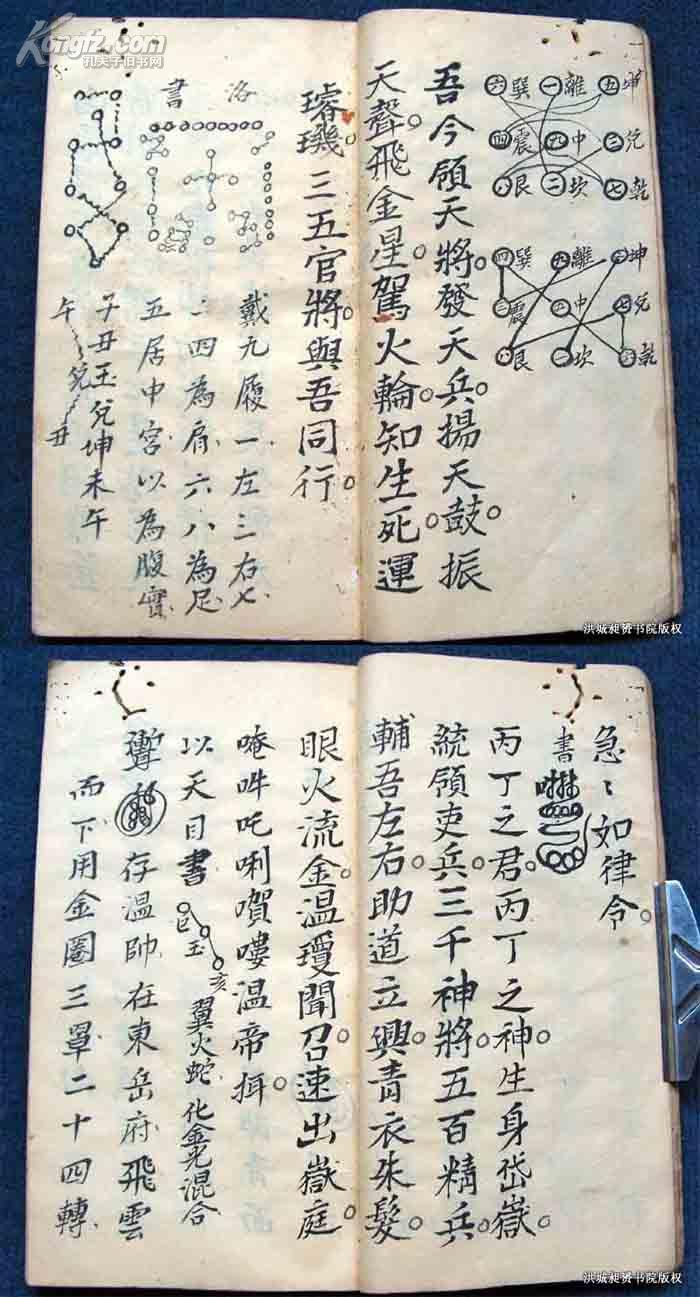 Kongfz.com
孔夫子旧书网
六 巽 一 離 五 坤
四 震 九 中 三 兌
八 艮 二 坎 七 乾
四 巽 九 離 二 坤
三 震 五 中 七 兌
八 艮 一 坎 六 乾
吾今領天將發天兵揚天鼓振
天聲飛金星駕火輪知生死運
璿璣三五官將與吾同行
洛書
戴九履一左三右七
二四為肩六八為足
五居中宮以為腹實
子丑玉兌坤未午
午兌丑
洪城昶赟书院版权
急〻如律令
書
丙丁之君丙丁之神生身岱嶽
統領吏兵三千神將五百精兵
輔吾左右助道立興青衣朱髮
眼火流金溫瓊聞召速出嶽庭
唵吽吒唎嘪嘍溫帝揖
以天目書 巳玉亥 翼火蛇化金光混合
存溫帥在東岳府飛雲
而下用金圈三罩二十四轉
洪城昶赟书院版权